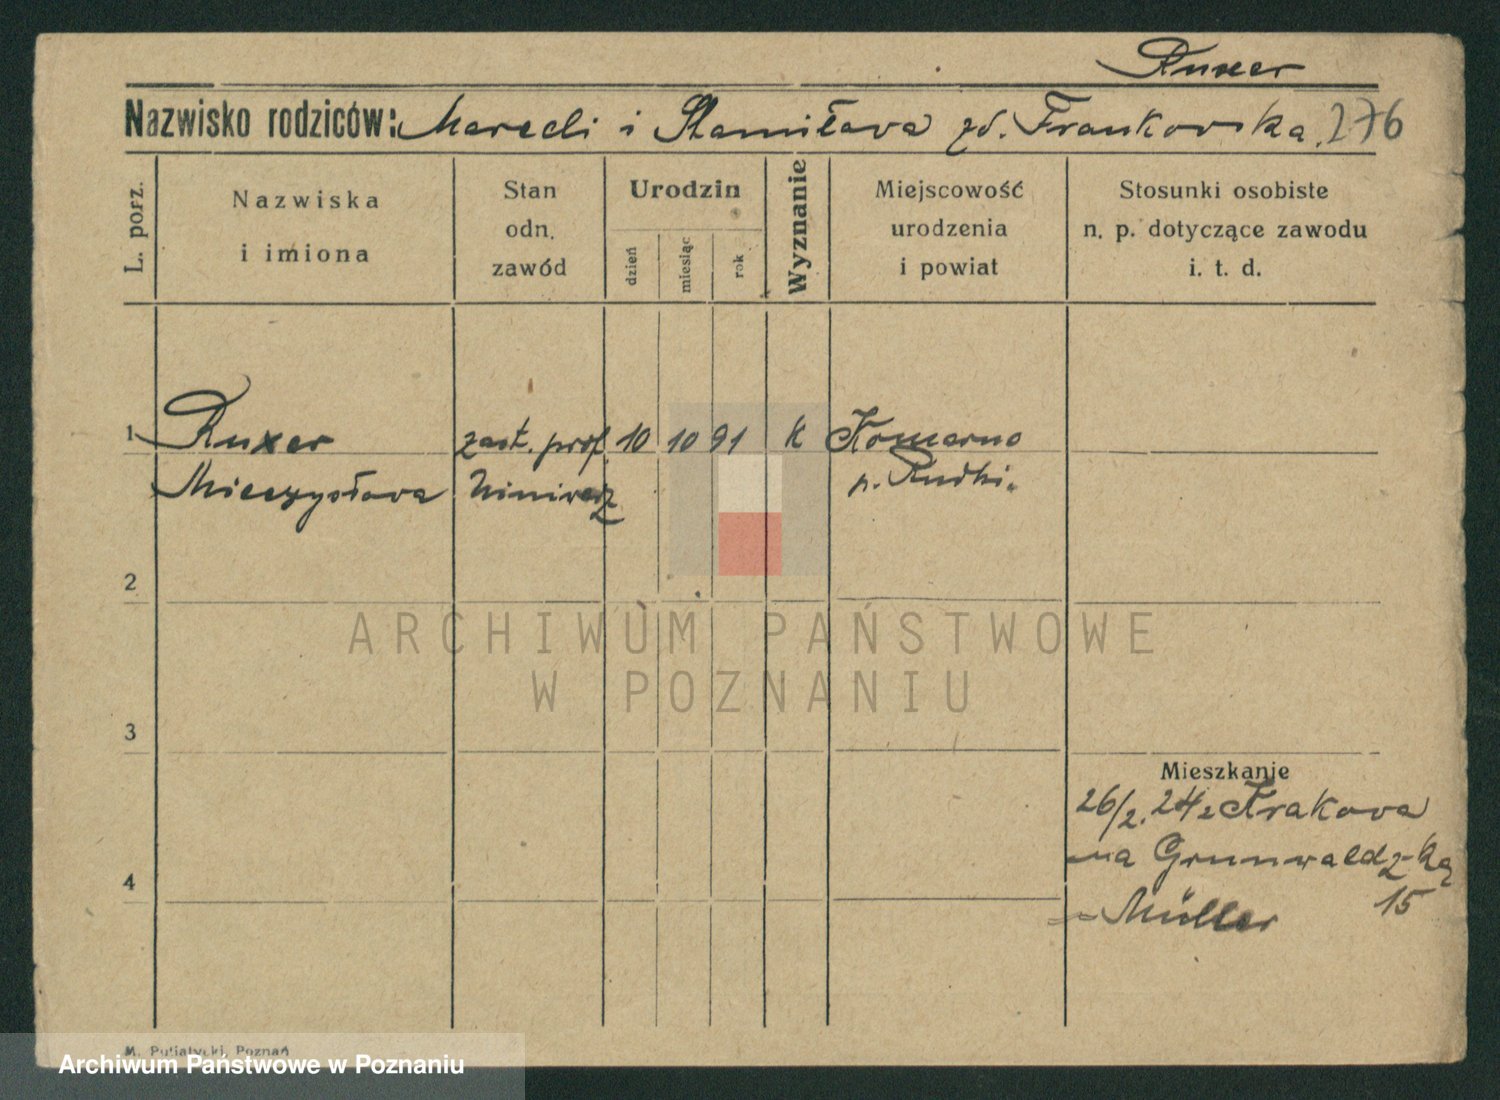 Ruxer
Nazwisko rodziców: Mareeli i Stanisława zd. Frankowska. 276
L. porz.
Nazwiska
i imiona
Stan
odn.
zawód
Urodzin
dzień
miesiąc
rok
Wyznanie
Miejscowość
urodzenia
i powiat
Stosunki osobiste
n. p. dotyczące zawodu
i. t. d.
1 Ruxer zast. prof 10 10 91 k Komarno
Mieczysława Uniwer p. Rudki.
2
ARCHIWUM PAŃSTWOWE
W POZNANIU
3
Mieszkanie
26/2. 24 z Krakowa
na Grunwaldzką
15
Müller
4
M. Putiatycki, Poznań
Archiwum Państwowe w Poznaniu